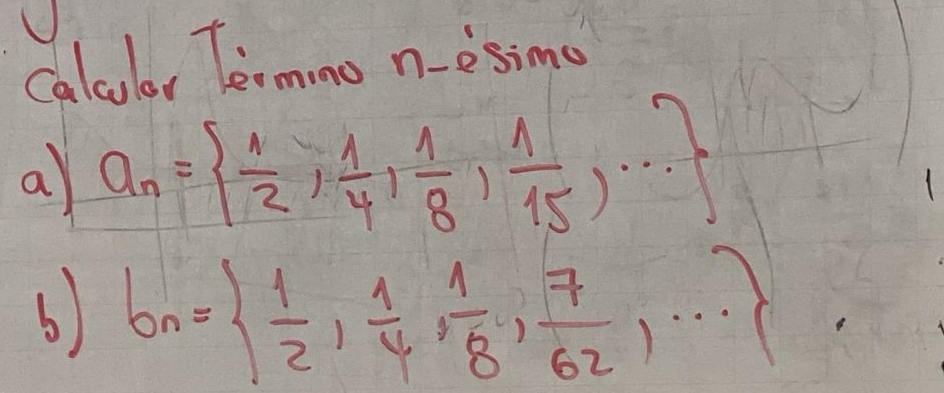 Calcular Término n-ésimo
a) an = { 1/2, 1/4, 1/8, 1/15, ... }
b) bn = { 1/2, 1/4, 1/8, 7/62, ... }